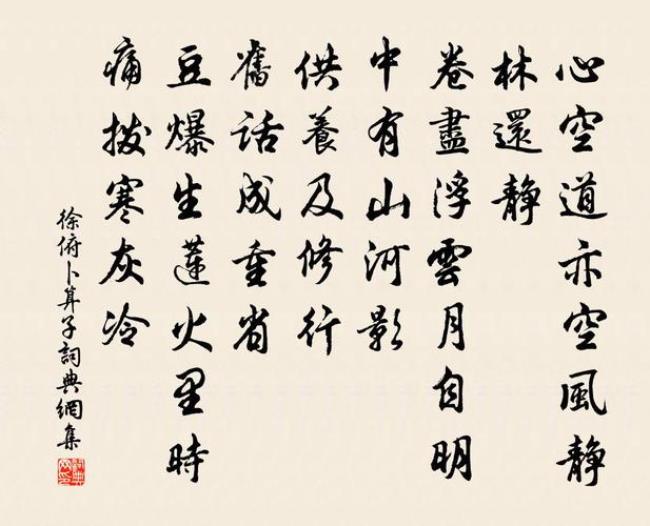 心空道亦空風靜
林還靜
卷盡浮雲月自明
中有山河影
供養及修行
舊話成重省
豆爆生蓮火里時
痛撥寒灰冷
徐俯卜算子詞典網集